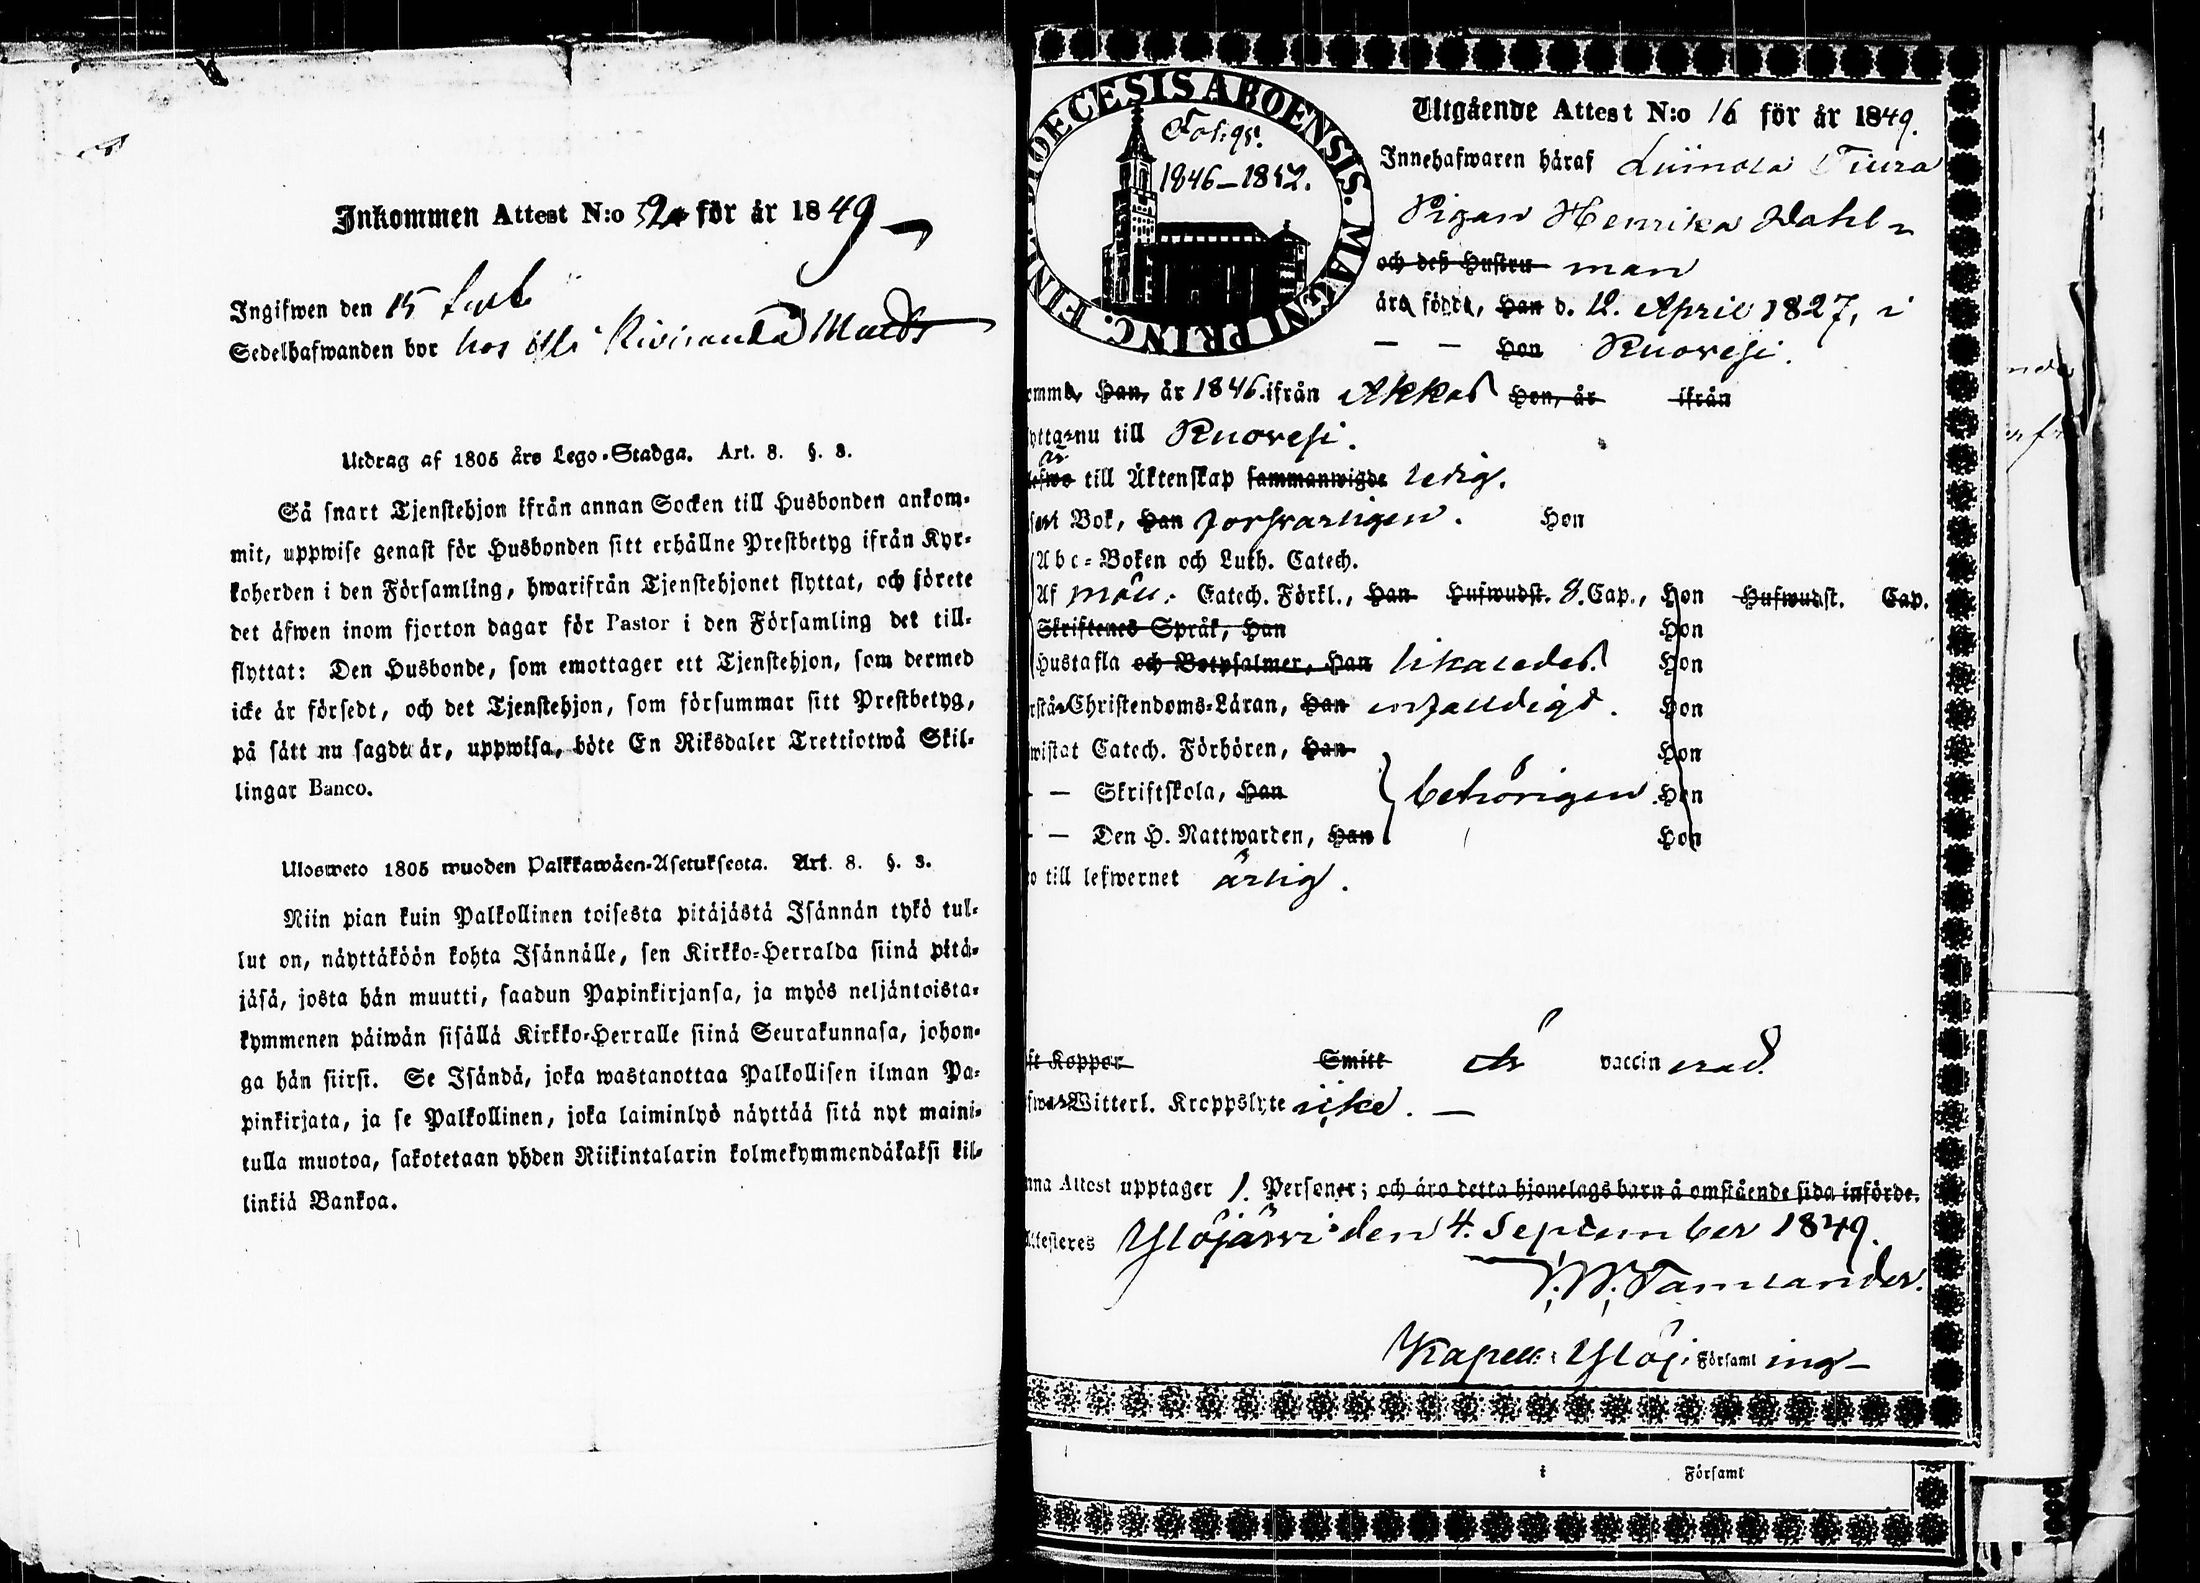 Inkommen Attest N:o 52 för år 1849
Ingifwen den 15
Sedelhafwanden bor hos
Utdrag af 1805 års Lego-Stadga. Art. 8. §. 3.
Så snart Tjenstehjon ifrån annan Socken till Husbonden ankom-
mit, uppwise genast för Husbonden sitt erhållne Prestbetyg ifrån Kyr-
koherden i den Församling, hwarifrån Tjenstehjonet flyttat, och förete
det äfwen inom fjorton dagar för Pastor i den Församling det till-
flyttat: Den Husbonde, som emottager ett Tjenstehjon, som dermed
icke är försedt, och det Tjenstehjon, som försummar sitt Prestbetyg,
på sätt nu sagdt är, uppwisa, böte En Riksdaler Trettiotwå Skil-
lingar Banco.
Ulosweto 1805 wuoden Palkkawäen-Asetuksesta. Art. 8. §. 3.
Niin pian kuin Palkollinen toisesta pitäjästä Isännän tykö tul-
lut on, näyttäköön kohta Isännälle, sen Kirkko-Herralda siinä pitä-
jäsä, josta hän muutti, saadun Papinkirjansa, ja myös neljäntoista-
kymmenen päiwän sisällä Kirkko-Herralle siinä Seurakunnasa, johon-
ga hän siirsi. Se Isändä, joka wastanottaa Palkollisen ilman Pa-
pinkirjata, ja se Palkollinen, joka laiminlyö näyttää sitä nyt maini-
tulla muotoa, sakotetaan yhden Riikintalarin kolmekymmendäkaksi kil-
linkiä Bankoa.
DIOECESIS ABOENSIS. MAGNI PRINC. FINL.
Fol: 95.
1846–1852.
Utgående Attest N:o 16 för år 1849.
Innehafwaren häraf Tiura
Pigan Henrika Dahl-
och deß Hustru man
äro födde, Han d. 12. April 1827, i
— — Hon Ruovesi.
omme, Han, år 1846. ifrån Akkas Hon, år ifrån
yttar nu till Ruovesi.
till Äktenskap sammanwigde ledig.
Bok, Han försvarligen. Hon
Abc-Boken och Luth. Catech.
Af Catech. Förkl., Han Hufwudst. 8. Cap., Hon Hufwudst. Cap.
Skriftenes Språk, Han Hon
Hustafla och Botpsalmer, Han likaledes. Hon
rstår Christendoms-Läran, Han enfaldigt. Hon
wistat Catech. Förhören, Han Hon
— — Skriftskola, Han behörigen. Hon
— — Den H. Nattwarden, Han Hon
till lefwernet ärlig.
ft Koppor Smitt är vaccinerad.
Witterl. Kroppslyte icke. —
nna Attest upptager 1. Personer; och äro detta hjonelags barn å omstående sida införde.
Attesteres Ylöjärvi den 4. September 1849.
Kapell: i Ylöj. Församling
i Församl